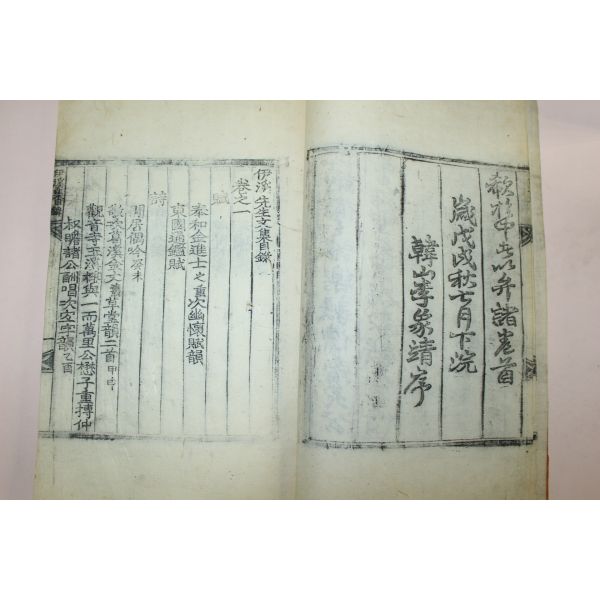 以弁諸卷首
歲戊戌秋七月下浣
韓山李象靖序
伊溪先生文集目錄
卷之一
賦
奉和金進士之重次幽懷賦韻
東國通鑑賦
詩
閒居偶吟癸未
敬次葛溪金丈舊草堂韻二首甲申
觀音寺玉溪與一而萬里公懋子重摶仲
叔瞻諸公酬唱次左字韻乙酉